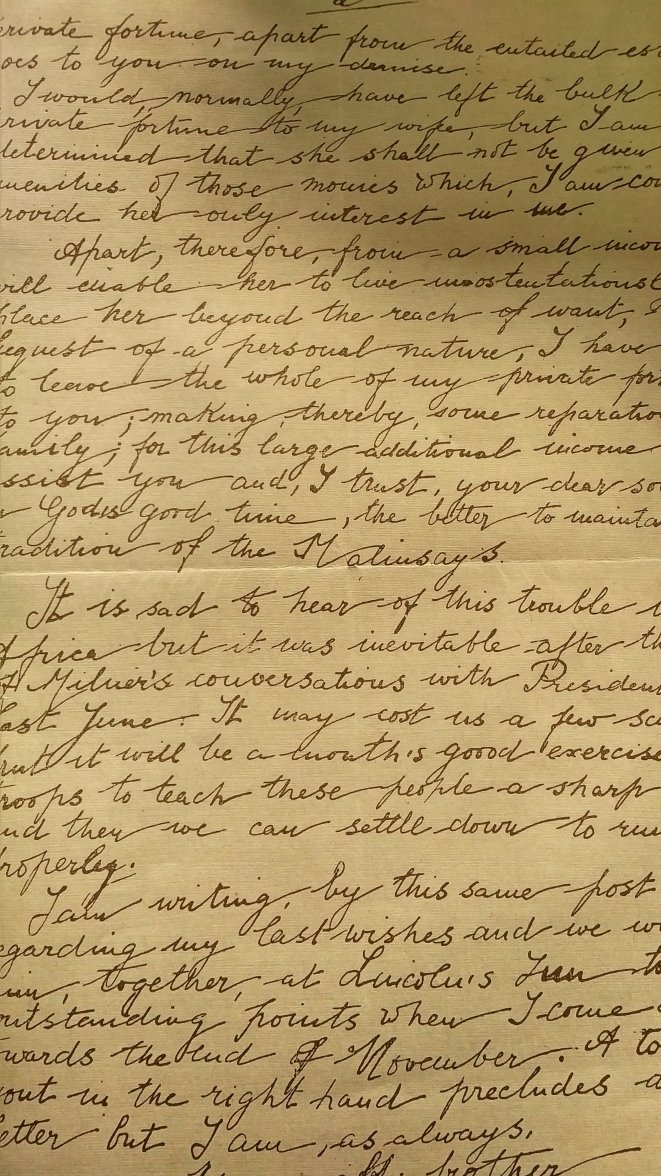 rivate fortune, apart from the entailed est
oes to you on my demise.
I would, normally, have left the bulk
rivate fortune to my wife, but I am
determined that she shall not be given
menities of those monies which, I am con
rovide her only interest in me.
Apart, therefore, from a small incom
will enable her to live unostentatiousl
place her beyond the reach of want,
bequest of a personal nature, I have
to leave the whole of my private fort
to you; making, thereby, some reparation
amily; for this large additional income
ssist you and, I trust, your dear so
n God's good time, the better to mainta
radition of the Malinsays.
It is sad to hear of this trouble i
Africa but it was inevitable after th
of Milner's conversations with President
last June. It may cost us a few
but it will be a month's good exercise
troops to teach these people a sharp
and then we can settle down to run
properly.
I am writing, by this same post
egarding my last wishes and we wi
, together, at Lincoln's Inn to
utstanding points when I come
wards the end of November. A to
gout in the right hand precludes a
letter but I am, as always,
brother